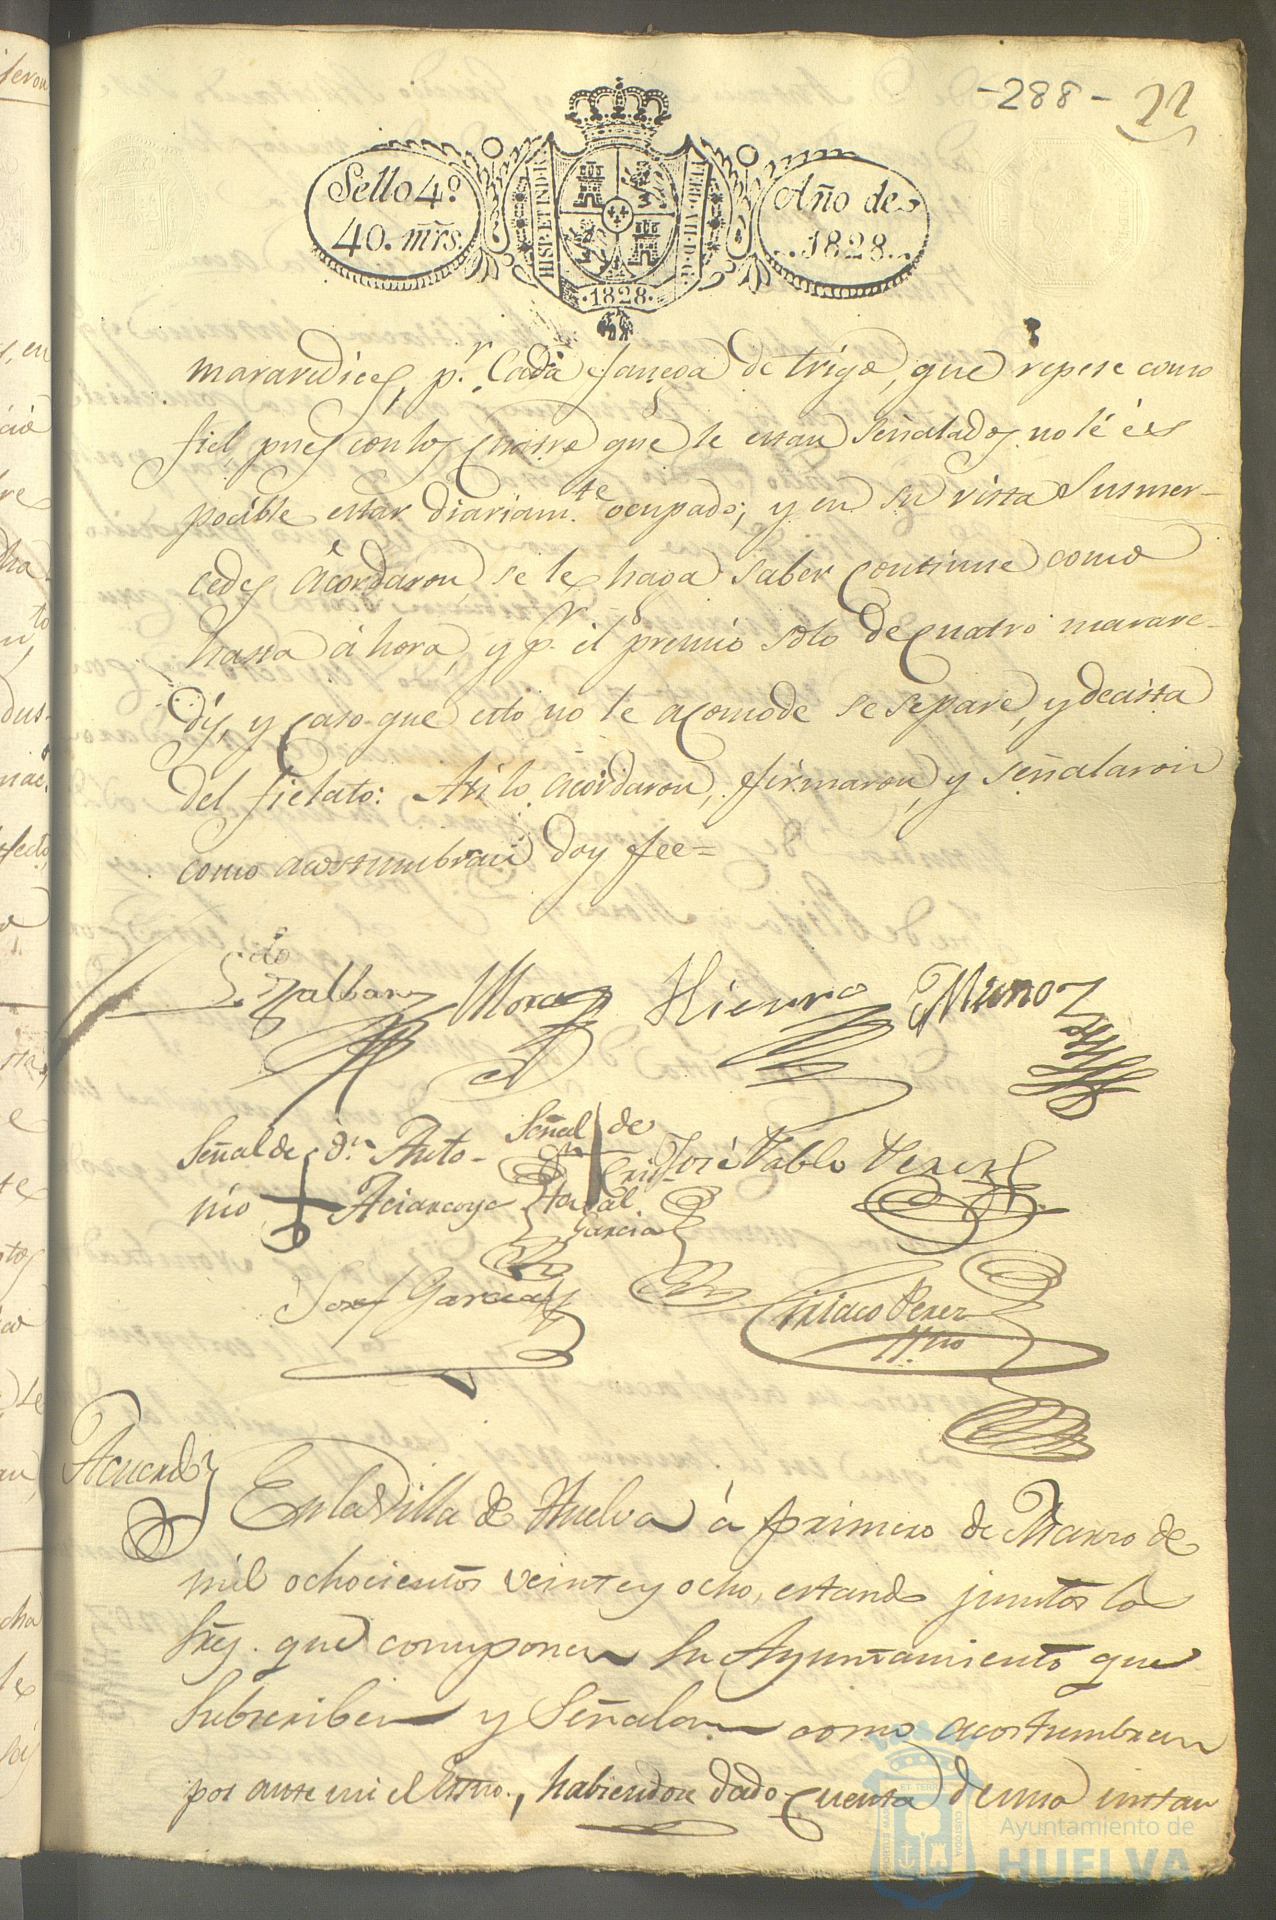 -288- 22
Sello 4º
40. mrs.
HISP. ET IND. R.
FERD. VII. D. G.
1828.
Año de
1828.
maravedices, p.r cada fanega de trigo, que repese como
fiel, pues con los cuatro que le estan señalados no lé és
pocible estar diariam.te ocupado; y en su vista Susmer-
cedes acordaron se le haga saber continue como
hasta áhora, y p.r el premio solo de cuatro marave-
dis, y caso que esto no le acomode se separe, y decista
del fielato: Asi lo acordaron, firmaron, y señalaron
como acostumbran doy fee=
Mora Hierro Munoz
Señal de d.n Anto-
nio
Señal de
Cris-
tobal
Garcia
José Pablo Perez
Josef Garcia
Ciriaco Perez
Acuerdo
En la Villa de Huelva á primero de Marzo de
mil ochocientos veinte y ocho, estando juntos los
Sres. que componen su Ayuntamiento que
subscriben y señalan como acostumbran
por ante mi el Esno., habiendose dado cuenta de una instan
Ayuntamiento de
HUELVA